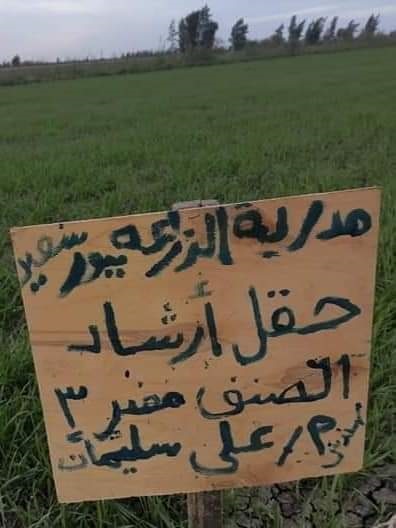 مدرية الزرعه ببورسعيد
حقل أرشاد
الصنف مصر ٣
م/ على سليمان